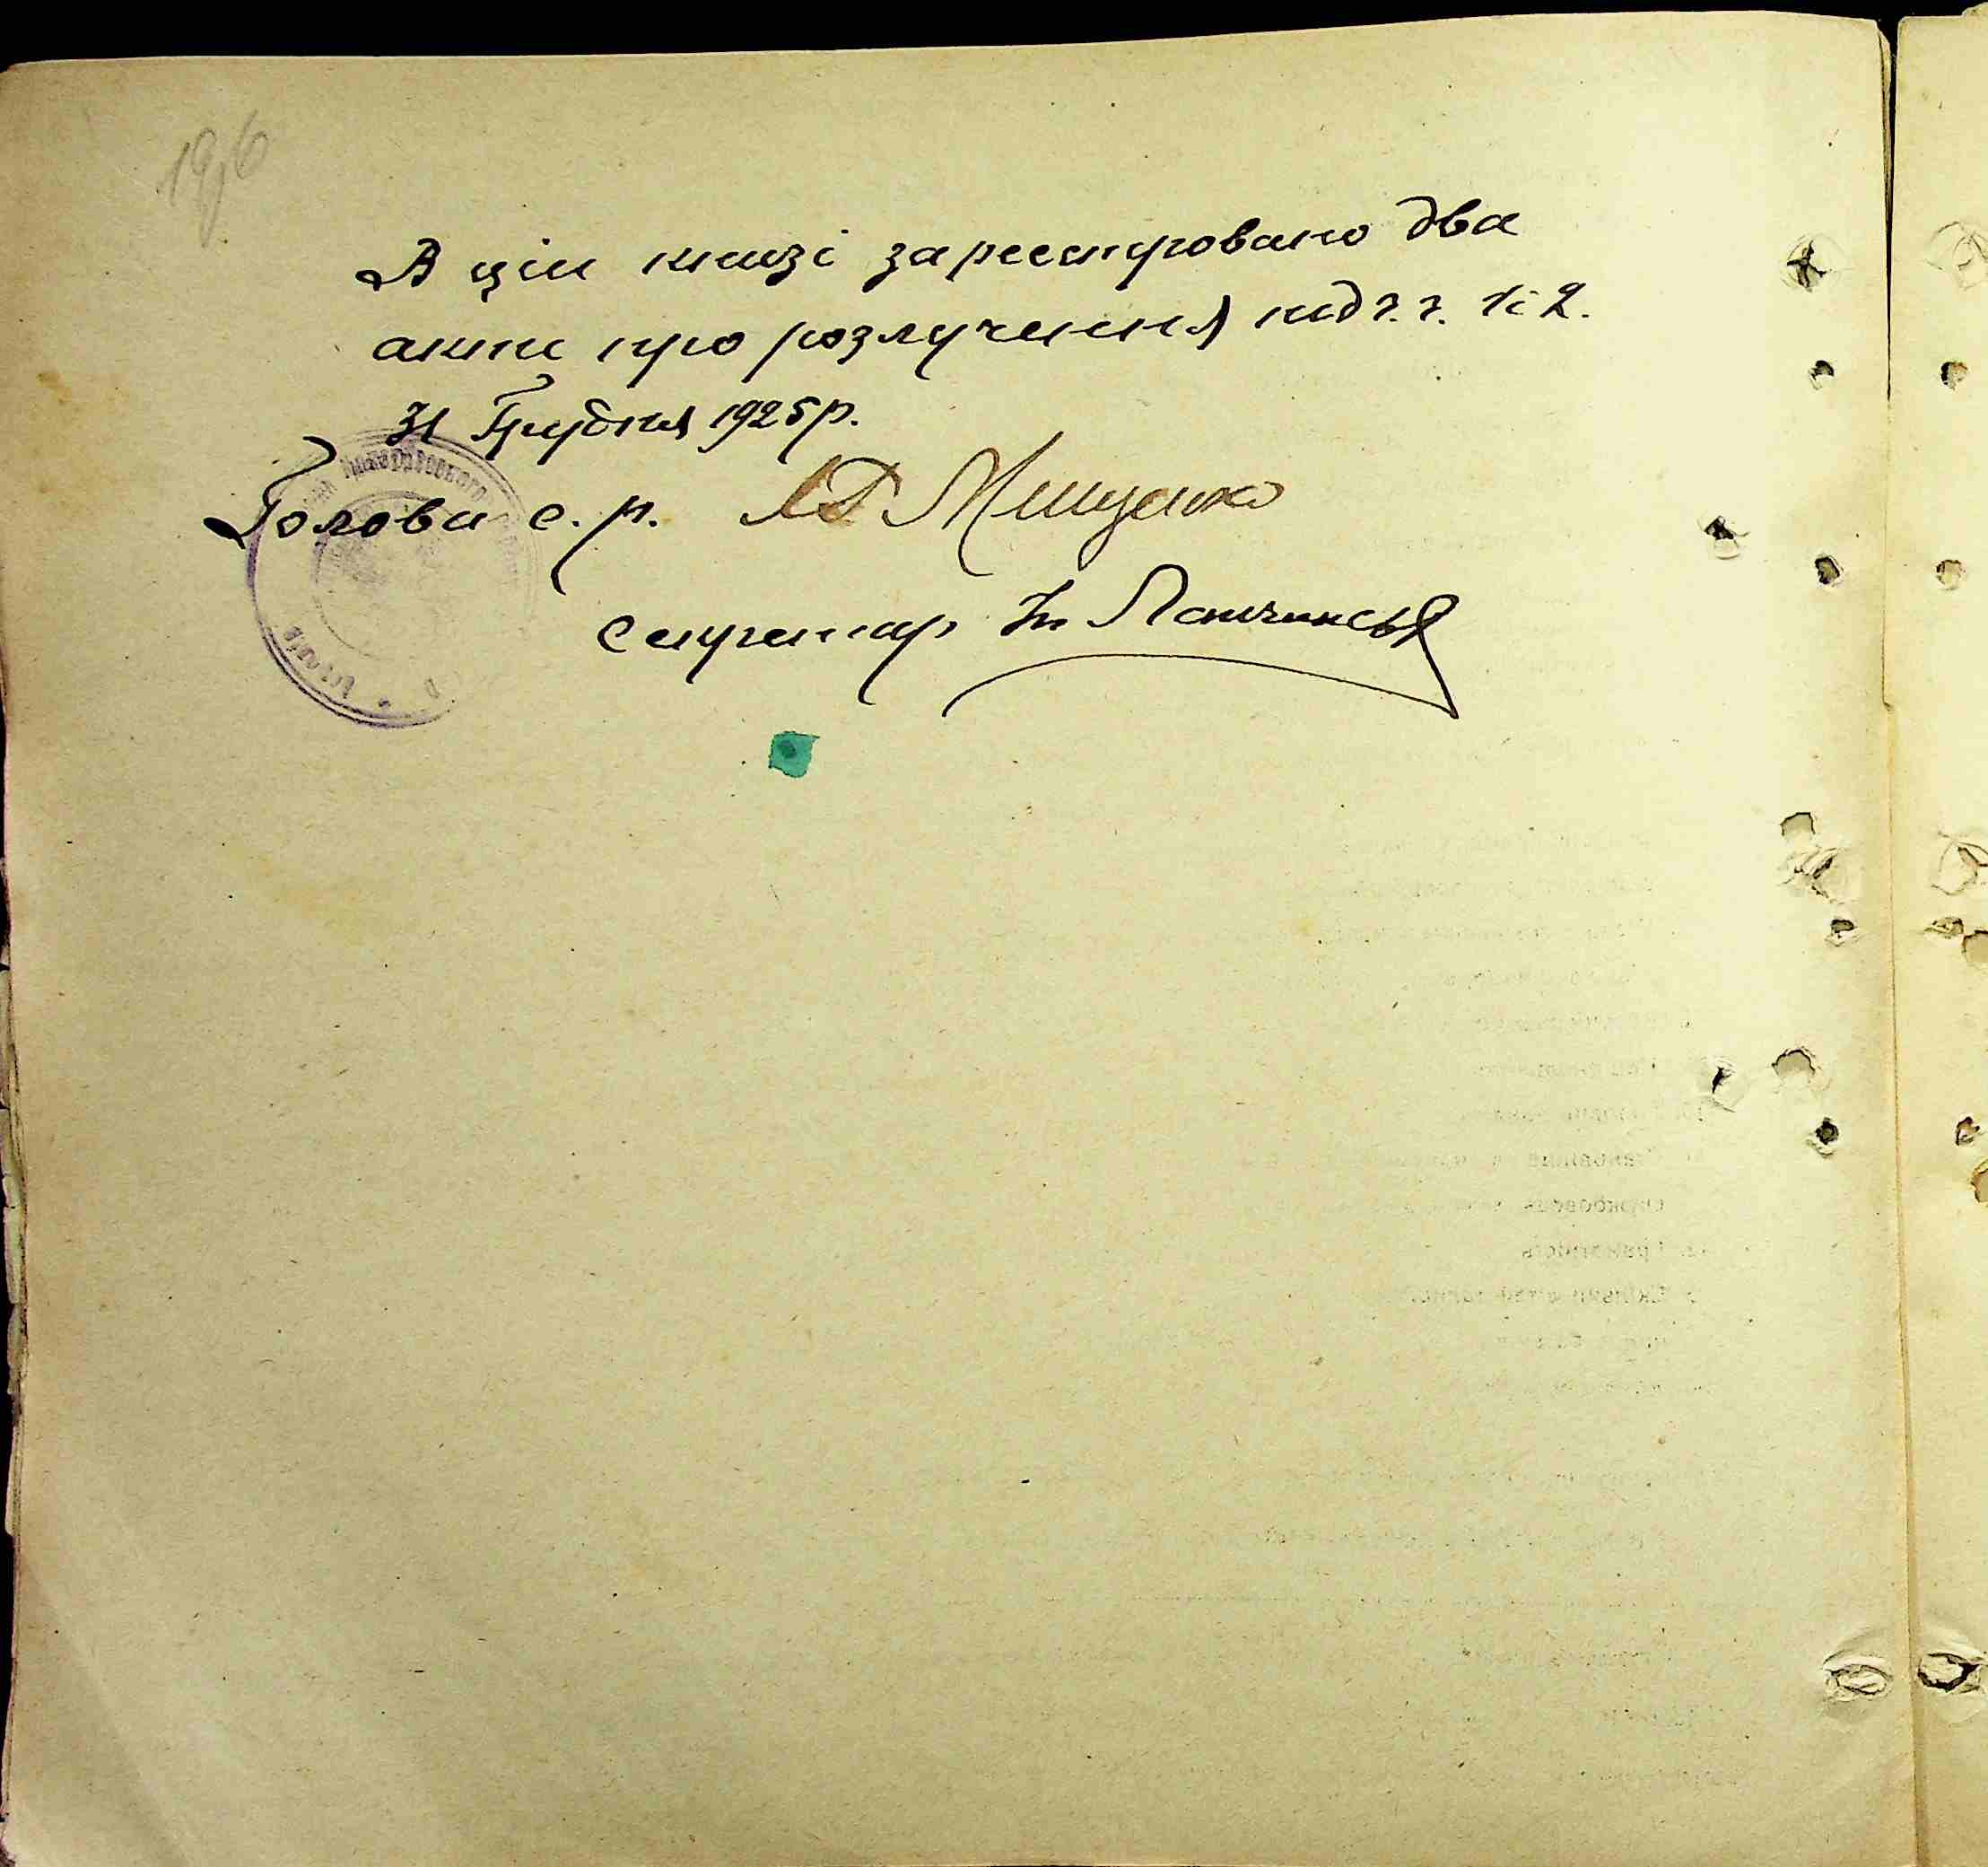 В цій книзі зареєстровано два
акти про розлучення під г.г. 1 і 2.
31 Грудня 1925 р.
Голова с. р. Мищенко
Секретар